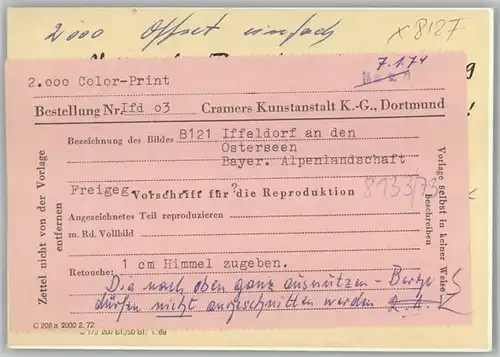 2000 Offset einfach
x 8127
7.1.74
2.ooo Color-Print
Bestellung Nr. Ifd o3 Cramers Kunstanstalt K.-G., Dortmund
Bezeichnung des Bildes 8121 Iffeldorf an den
Osterseen
Bayer. Alpenlandschaft
Freigeg. Vorschrift für? die Reproduktion 8133/73
Angezeichnetes Teil reproduzieren
m. Rd. Vollbild
Retouche: 1 cm Himmel zugeben.
Dia nach oben ganz ausnützen - Berge
dürfen nicht angeschnitten werden
Zettel nicht von der Vorlage
entfernen
Vorlage selbst in keiner Weise
beschreiben
C 208 a 2000 2. 72